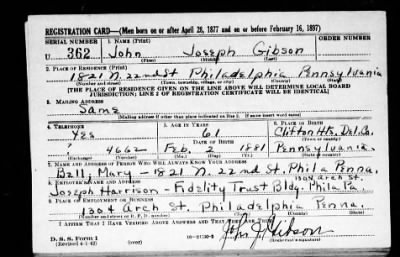 REGISTRATION CARD—(Men born on or after April 28, 1877 and on or before February 16, 1897)
SERIAL NUMBER 1. NAME (Print)
U 362 John Joseph Gibson
(First) (Middle) (Last)
2. PLACE OF RESIDENCE (Print)
1821 N. 22nd St Philadelphia Pennsylvania
(Number and street) (Town, township, village, or city) (County) (State)
[THE PLACE OF RESIDENCE GIVEN ON THE LINE ABOVE WILL DETERMINE LOCAL BOARD
JURISDICTION; LINE 2 OF REGISTRATION CERTIFICATE WILL BE IDENTICAL]
3. MAILING ADDRESS
Same
[Mailing address if other than place indicated on line 2. If same insert word same]
4. TELEPHONE 5. AGE IN YEARS 6. PLACE OF BIRTH
Yes 61 Clifton Hts. Del. Co.
DATE OF BIRTH (Town or county)
4662 Feb. 2 1881 Pennsylvania
(Exchange) (Number) (Mo.) (Day) (Yr.) (State or country)
7. NAME AND ADDRESS OF PERSON WHO WILL ALWAYS KNOW YOUR ADDRESS
Bell, Mary - 1821 N. 22nd St, Phila Penna.
8. EMPLOYER'S NAME AND ADDRESS 1304 Arch St.
Joseph Harrison - Fidelity Trust Bldg. Phila Pa
9. PLACE OF EMPLOYMENT OR BUSINESS
1304 Arch St. Philadelphia Penna.
(Number and street or R. F. D. number) (Town) (County) (State)
I AFFIRM THAT I HAVE VERIFIED ABOVE ANSWERS AND THAT THEY ARE TRUE.
D. S. S. Form 1
(Revised 4-1-42) John J. Gibson